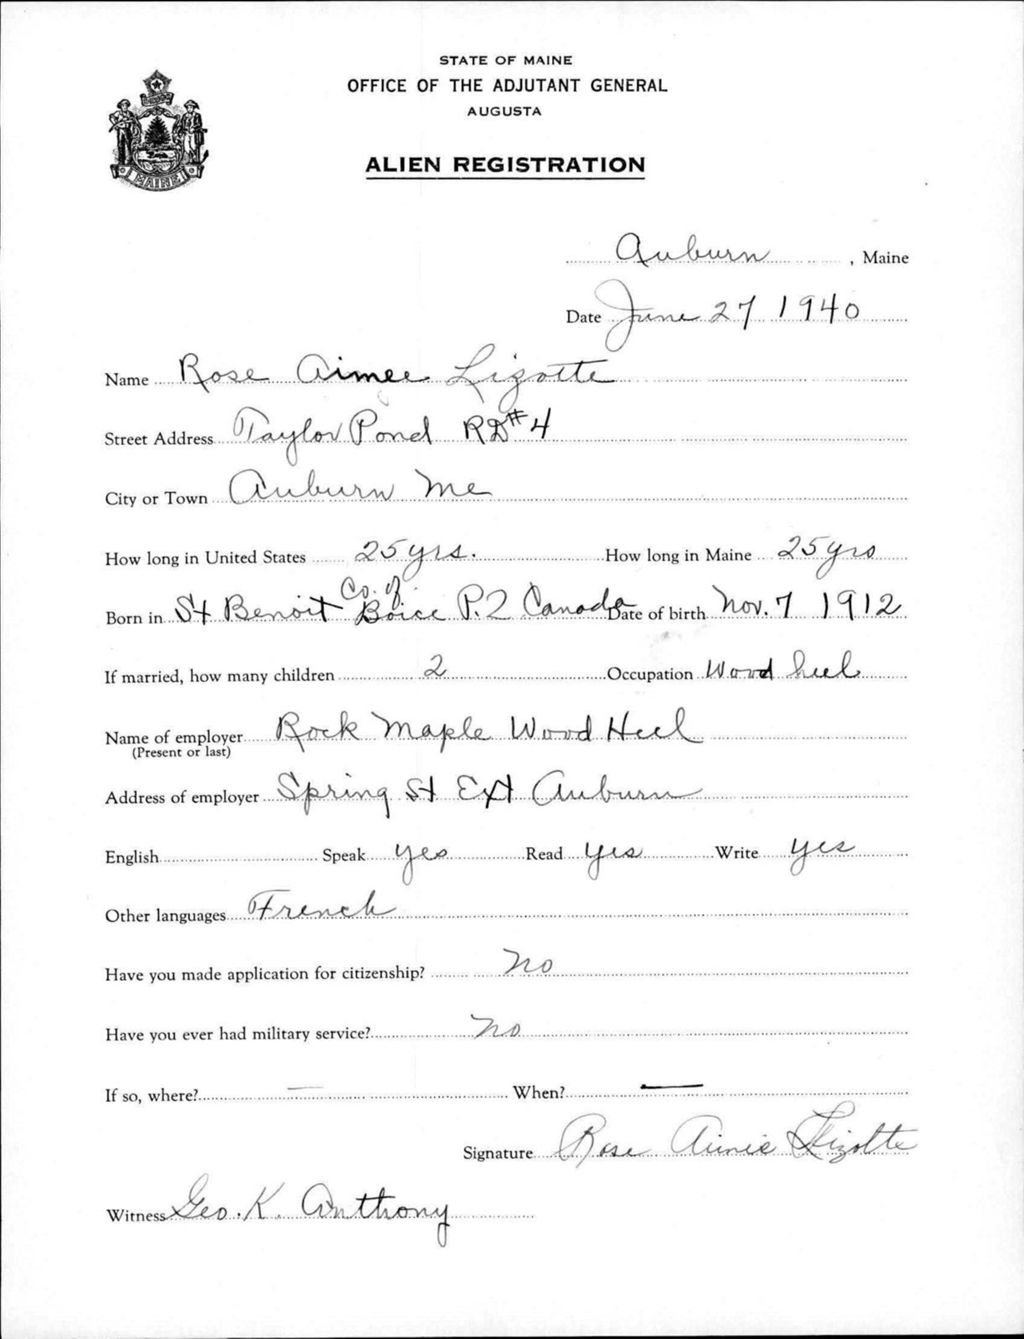 STATE OF MAINE
OFFICE OF THE ADJUTANT GENERAL
AUGUSTA
ALIEN REGISTRATION
MAINE
Auburn, Maine
Date June 27 1940
Name Rose Aimee Lizotte
Street Address Taylor Pond RD#4
City or Town Auburn Me
How long in United States 25 yrs. How long in Maine 25 yrs
Born in St Benoit Co. of Boice P.2 Canada Date of birth Nov. 7 1912
If married, how many children 2 Occupation Wood heel
Name of employer Rock Maple Wood Heel
(Present or last)
Address of employer Spring St Ext Auburn
English Speak yes Read yes Write yes
Other languages French
Have you made application for citizenship? No
Have you ever had military service? No
If so, where? — When? —
Signature Rose Aimie Lizotte
Witness Geo. K. Anthony